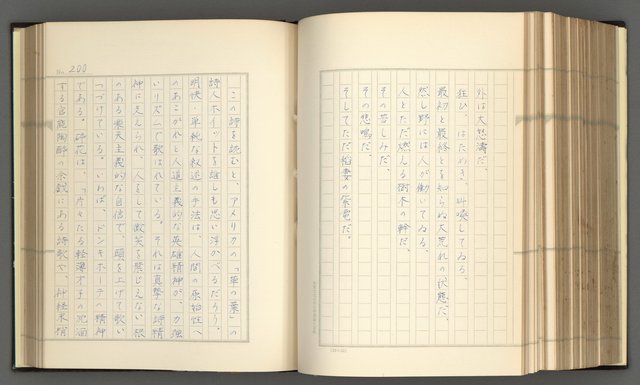 外は大怒濤だ。
狂ひ、はためき、叫喚してゐる。
最初と最後とを知らぬ大荒れの状態だ。
然し野には人が働いてゐる。
人とただ燃える樹木の幹だ。
その苦しみだ。
その悲鳴だ。
そしてただ稲妻の紫電だ。
No. 200
この詩を読むと、アメリカの「草の葉」の
詩人ホイットマンを誰しも思い浮かべるだろう。
明快・単純な叙述の手法は、人間の原始性へ
のあこがれと人道主義的な英雄精神が、力強
いリズムで歌はれている。それは真摯な詩精
神に支えられ、人をして微笑を禁じえない根
のある楽天主義的な自信で、頭を上げて歌い
つづけている。いわば、ドンキホーテの精神
である。砕花は、「片々たる軽薄才子の
する官能陶酔の余戯にある詩歌や、神経末梢